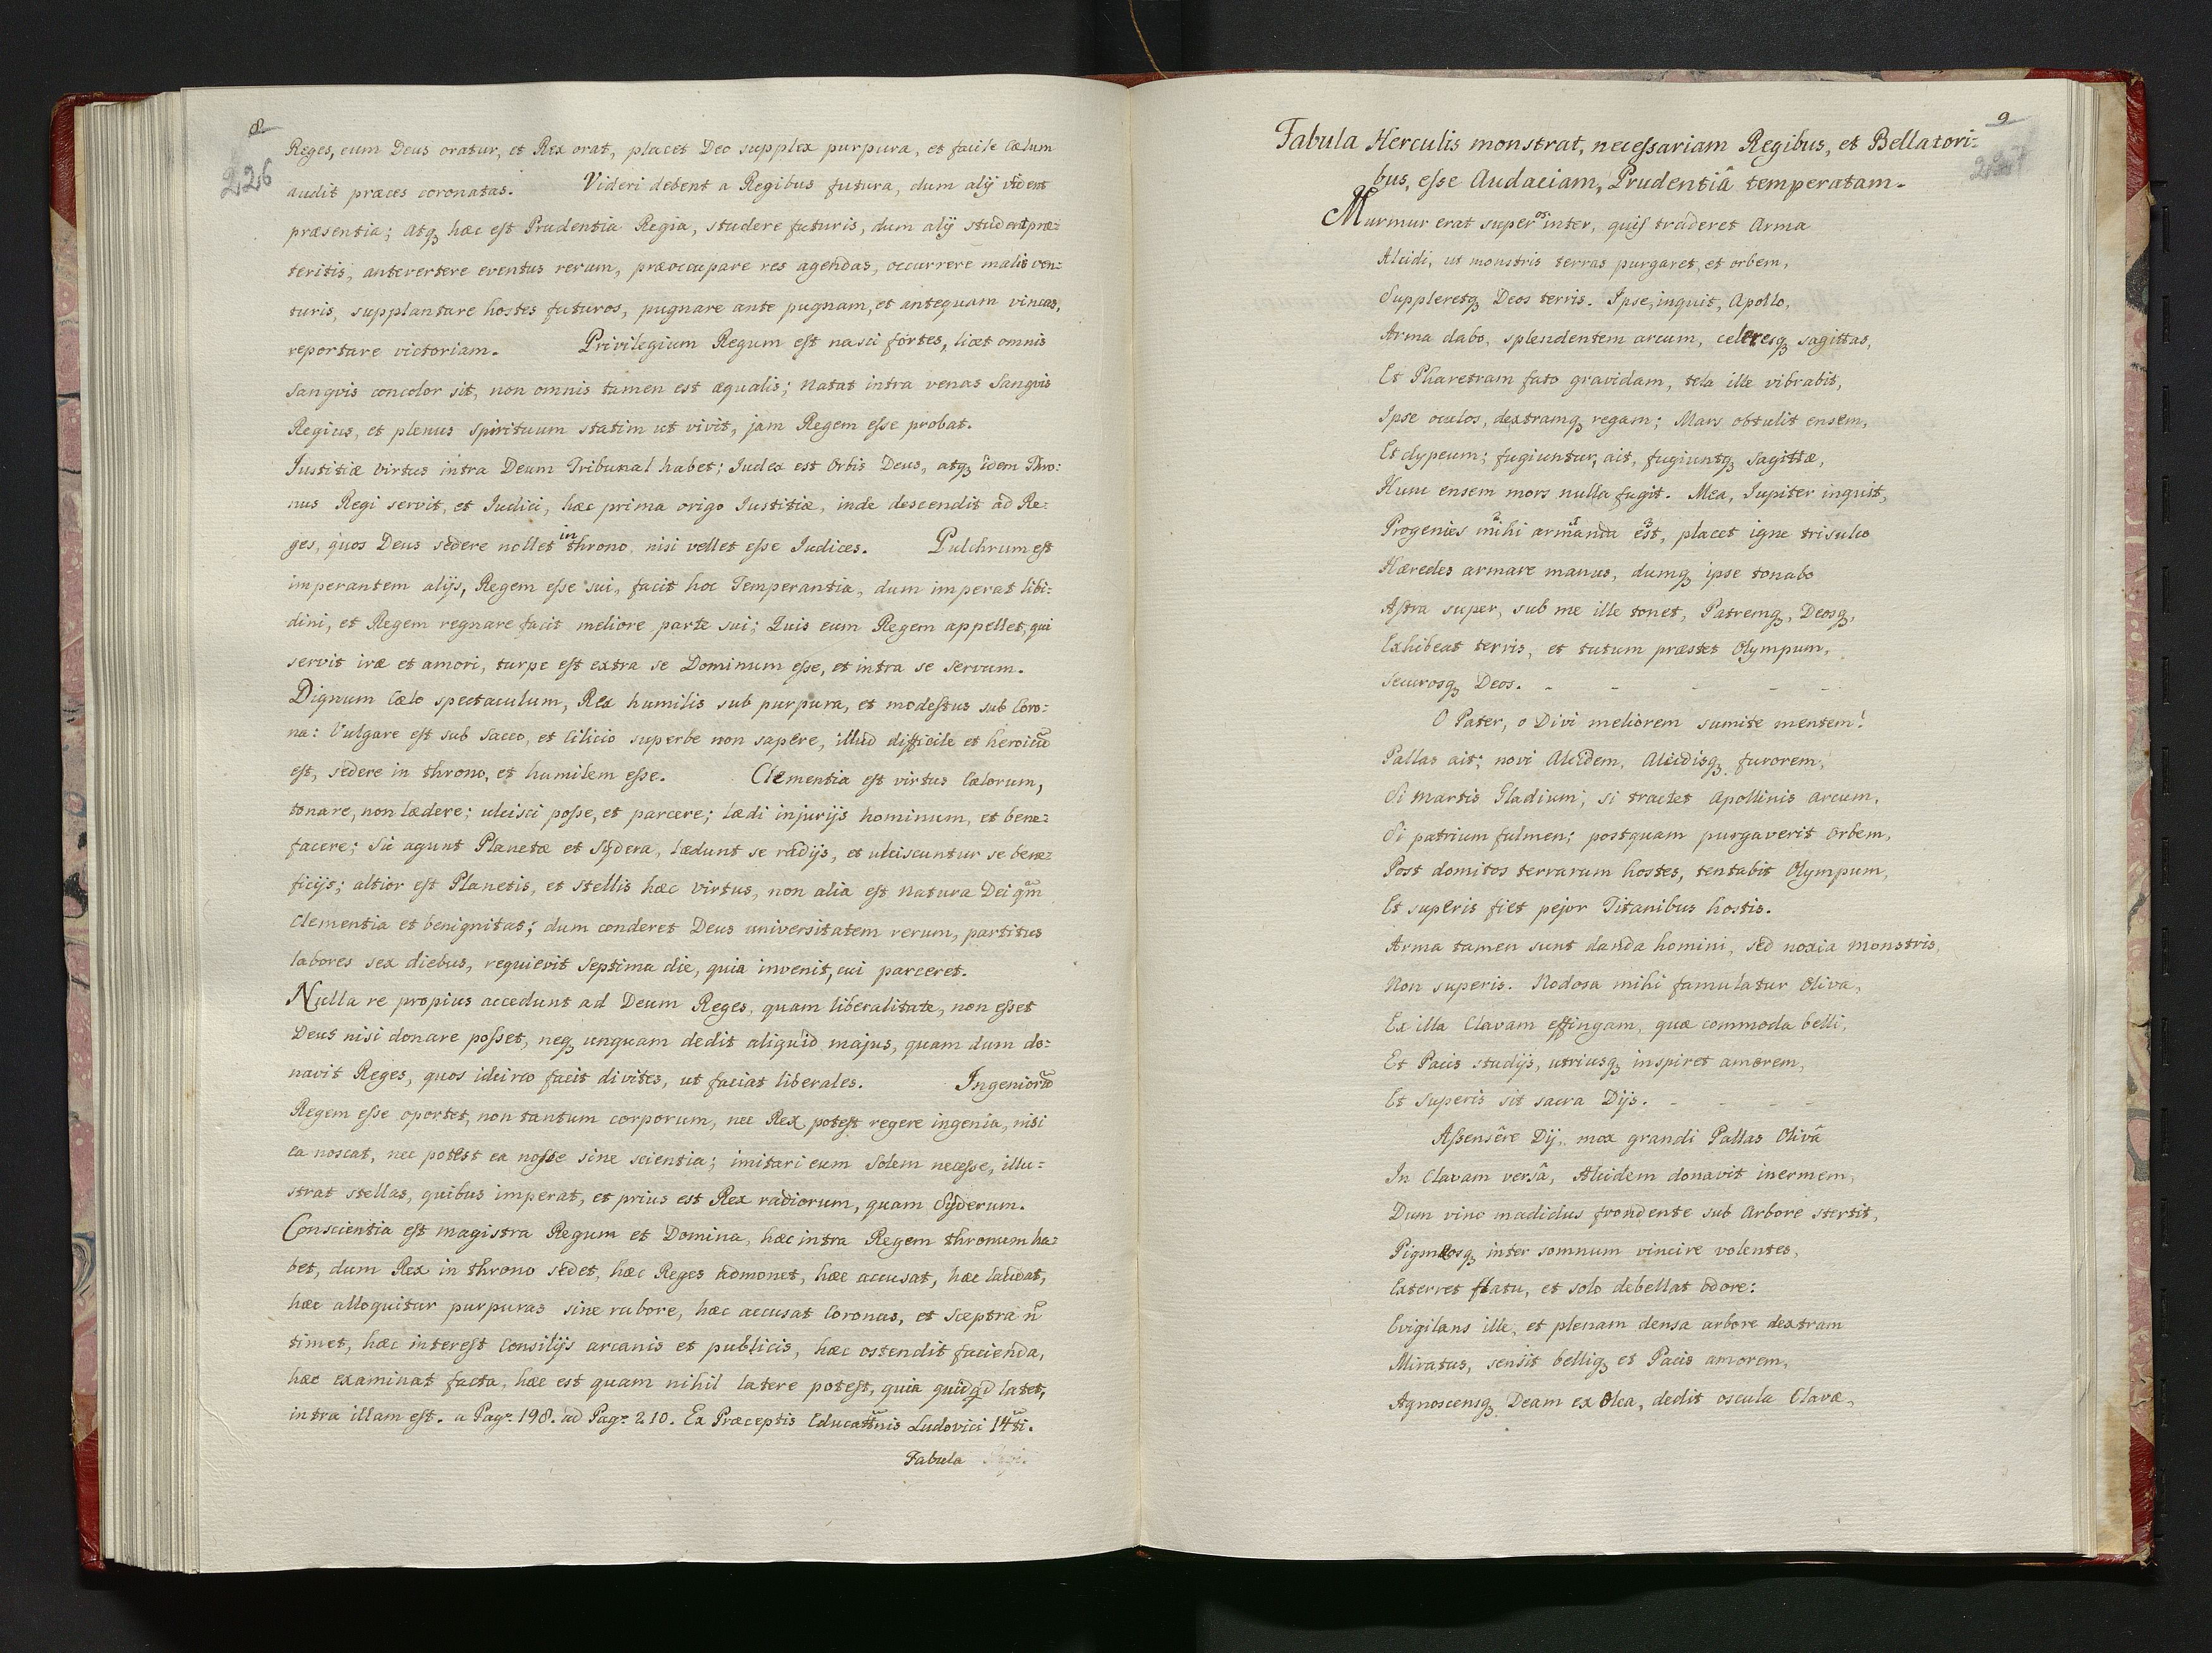 8
226
Reges, cum Deus oratur, et Rex orat, placet Deo supplex purpura, et facile Cælum
audit præces coronatas. Videri debent a Regibus futura, dum alij vident
præsentia; atq, hæc est Prudentia Regia, studere futuris, dum alij student præ=
teritis, antevertere eventus rerum, præoccupare res agendas, occurrere malis ven=
turis, supplantare hostes futuros, pugnare ante pugnam, et antequam vincas,
reportare victoriam. Privilegium Regum est nasci fortes, licet omnis
Sangvis concolor sit, non omnis tamen est æqualis; natat intra venas Sangvis
Regius, et plenus Spirituum statim ut vivit, jam Regem esse probat.
Iustitiæ virtus intra Deum Tribunal habet; Iudex est Orbis Deus, atq, idem Thro=
nus Regi servit, et Iudici, hæc prima origo Iustitiæ, inde descendit ad Re=
ges, quos Deus sedere nollet in throno, nisi vellet esse Iudices. Pulchrum est
imperantem alijs, Regem esse sui, facit hoc Temperantia, dum imperat libi=
dini, et Regem regnare facit meliore parte sui; Quis eum Regem appellet, qui
servit iræ et amori, turpe est extra se Dominum esse, et intra se Servum.
Dignum Cælo spectaculum, Rex humilis sub purpura, et modestus sub Coro=
na: Vulgare est sub Sacco, et Cilicio superbe non sapere, illud difficile et heroicũ
est, sedere in throno, et humilem esse. Clementia est virtus Cælorum,
tonare, non lædere; ulcisci posse, et parcere; lædi injurijs hominum, et bene=
facere; Sic agunt Planetæ et Sydera, lædunt se radijs, et ulciscuntur se bene=
ficijs; altior est Planetis, et Stellis hæc virtus, non alia est Natura Dei qm̃
Clementia et benignitas; dum conderet Deus universitatem rerum, partitus
labores sex diebus, requievit Septima die, quia invenit, cui parceret.
Nulla re propius accedunt ad Deum Reges, quam liberalitate, non esset
Deus nisi donare posset, neq, unquam dedit aliquid majus, quam dum do=
navit Reges, quos idcirco facit divites, ut faciat liberales. Ingeniorũ
Regem esse oportet, non tantum corporum, nec Rex potest regere ingenia, nisi
ea noscat, nec potest ea nosse sine scientia; imitari eum Solem necesse, illu=
strat stellas, quibus imperat, et prius est Rex radiorum, quam Syderum.
Conscientia est magistra Regum et Domina, hæc intra Regem thronum ha=
bet, dum Rex in throno sedet, hæc Reges admonet, hæc accusat, hæc laudat,
hæc alloquitur purpuras sine rubore, hæc accusat Coronas, et Sceptra ñ
timet, hæc interest Consilijs arcanis et publicis, hæc ostendit facienda,
hæc examinat facta, hæc est quam nihil latere potest, quia quidqd latet,
intra illam est. a Pag: 198. ad Pag: 210. Ex Præceptis Educatñis Ludovici 14ti.
Fabula
9
227
Fabula Herculis monstrat, necessariam Regibus, et Bellatori=
bus, esse Audaciam, Prudentiâ temperatam.
Murmur erat superos inter, quis traderet Arma
Alcidi, ut monstris terras purgaret, et orbem,
Suppleretq, Deos terris. Ipse, inquit, Apollo,
Arma dabo, splendentem arcum, celeresq, sagittas,
Et Pharetram fato gravidam, tela ille vibrabit,
Ipse oculos, dextramq, regam; Mars obtulit ensem,
Et clypeum; fugiuntur, ait, fugiuntq, Sagittæ,
Hunc ensem mors nulla fugit. Mea, Iupiter inquit,
Progenies 2 mihi 1 armanda 3 est, placet igne trisulco
Hæredes armare manus, dumq, ipse tonabo
Astra super, sub me ille tonet, Patremq, Deosq,
Exhibeat terris, et tutum præstet Olympum,
Securosq, Deos. - - - - -
O Pater, o Divi meliorem sumite mentem!
Pallas ait; novi Alcidem, Alcidisq, furorem,
Si Martis Gladium, si tractet Apollinis arcum,
Si patrium fulmen; postquam purgaverit Orbem,
Post domitos terrarum hostes, tentabit Olympum,
Et superis fiet pejor Titanibus hostis.
Arma tamen sunt danda homini, sed noxia monstris,
Non superis. Nodosa mihi famulatur Oliva,
Ex illa Clavam effingam, quæ commoda belli,
Et Pacis studijs, utriusq, inspiret amorem,
Et Superis sit sacra Dijs. - - - -
Assensêre Dij, mox grandi Pallas Olivâ
In Clavam versâ, Alcidem donavit inermem,
Dum vino madidus frondente sub Arbore stertit,
Pigmæosq, inter somnum vincire volentes,
Exterret flatu, et solo debellat odore:
Evigilans ille, et plenam densa arbore dextram
Miratus, sensit belliq, et Pacis amorem,
Agnoscensq, Deam ex Olea, dedit oscula Clavæ,